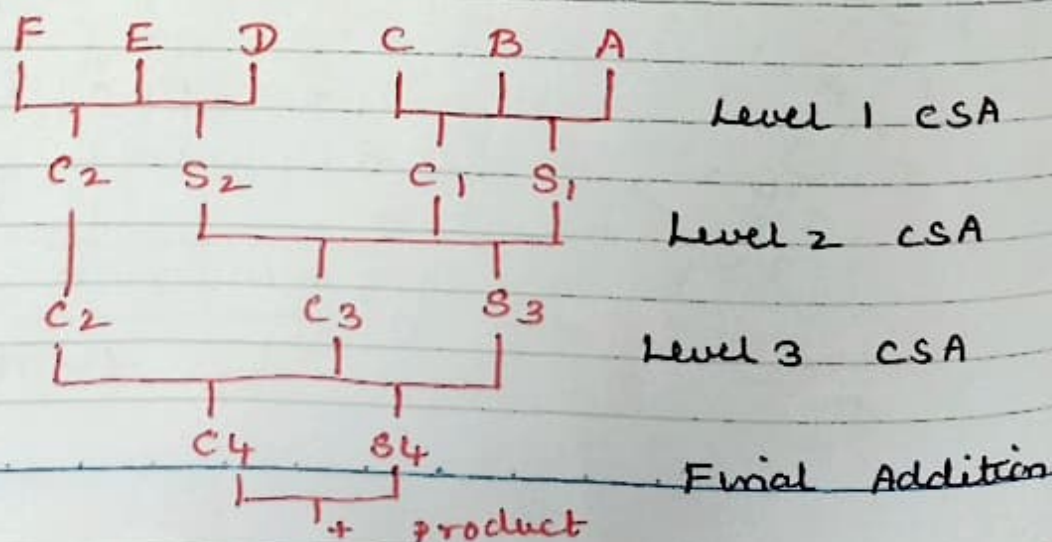 F E D C B A
Level 1 CSA
C2 S2 C1 S1
Level 2 CSA
C2 C3 S3
Level 3 CSA
C4 S4
Final Addition
+ product